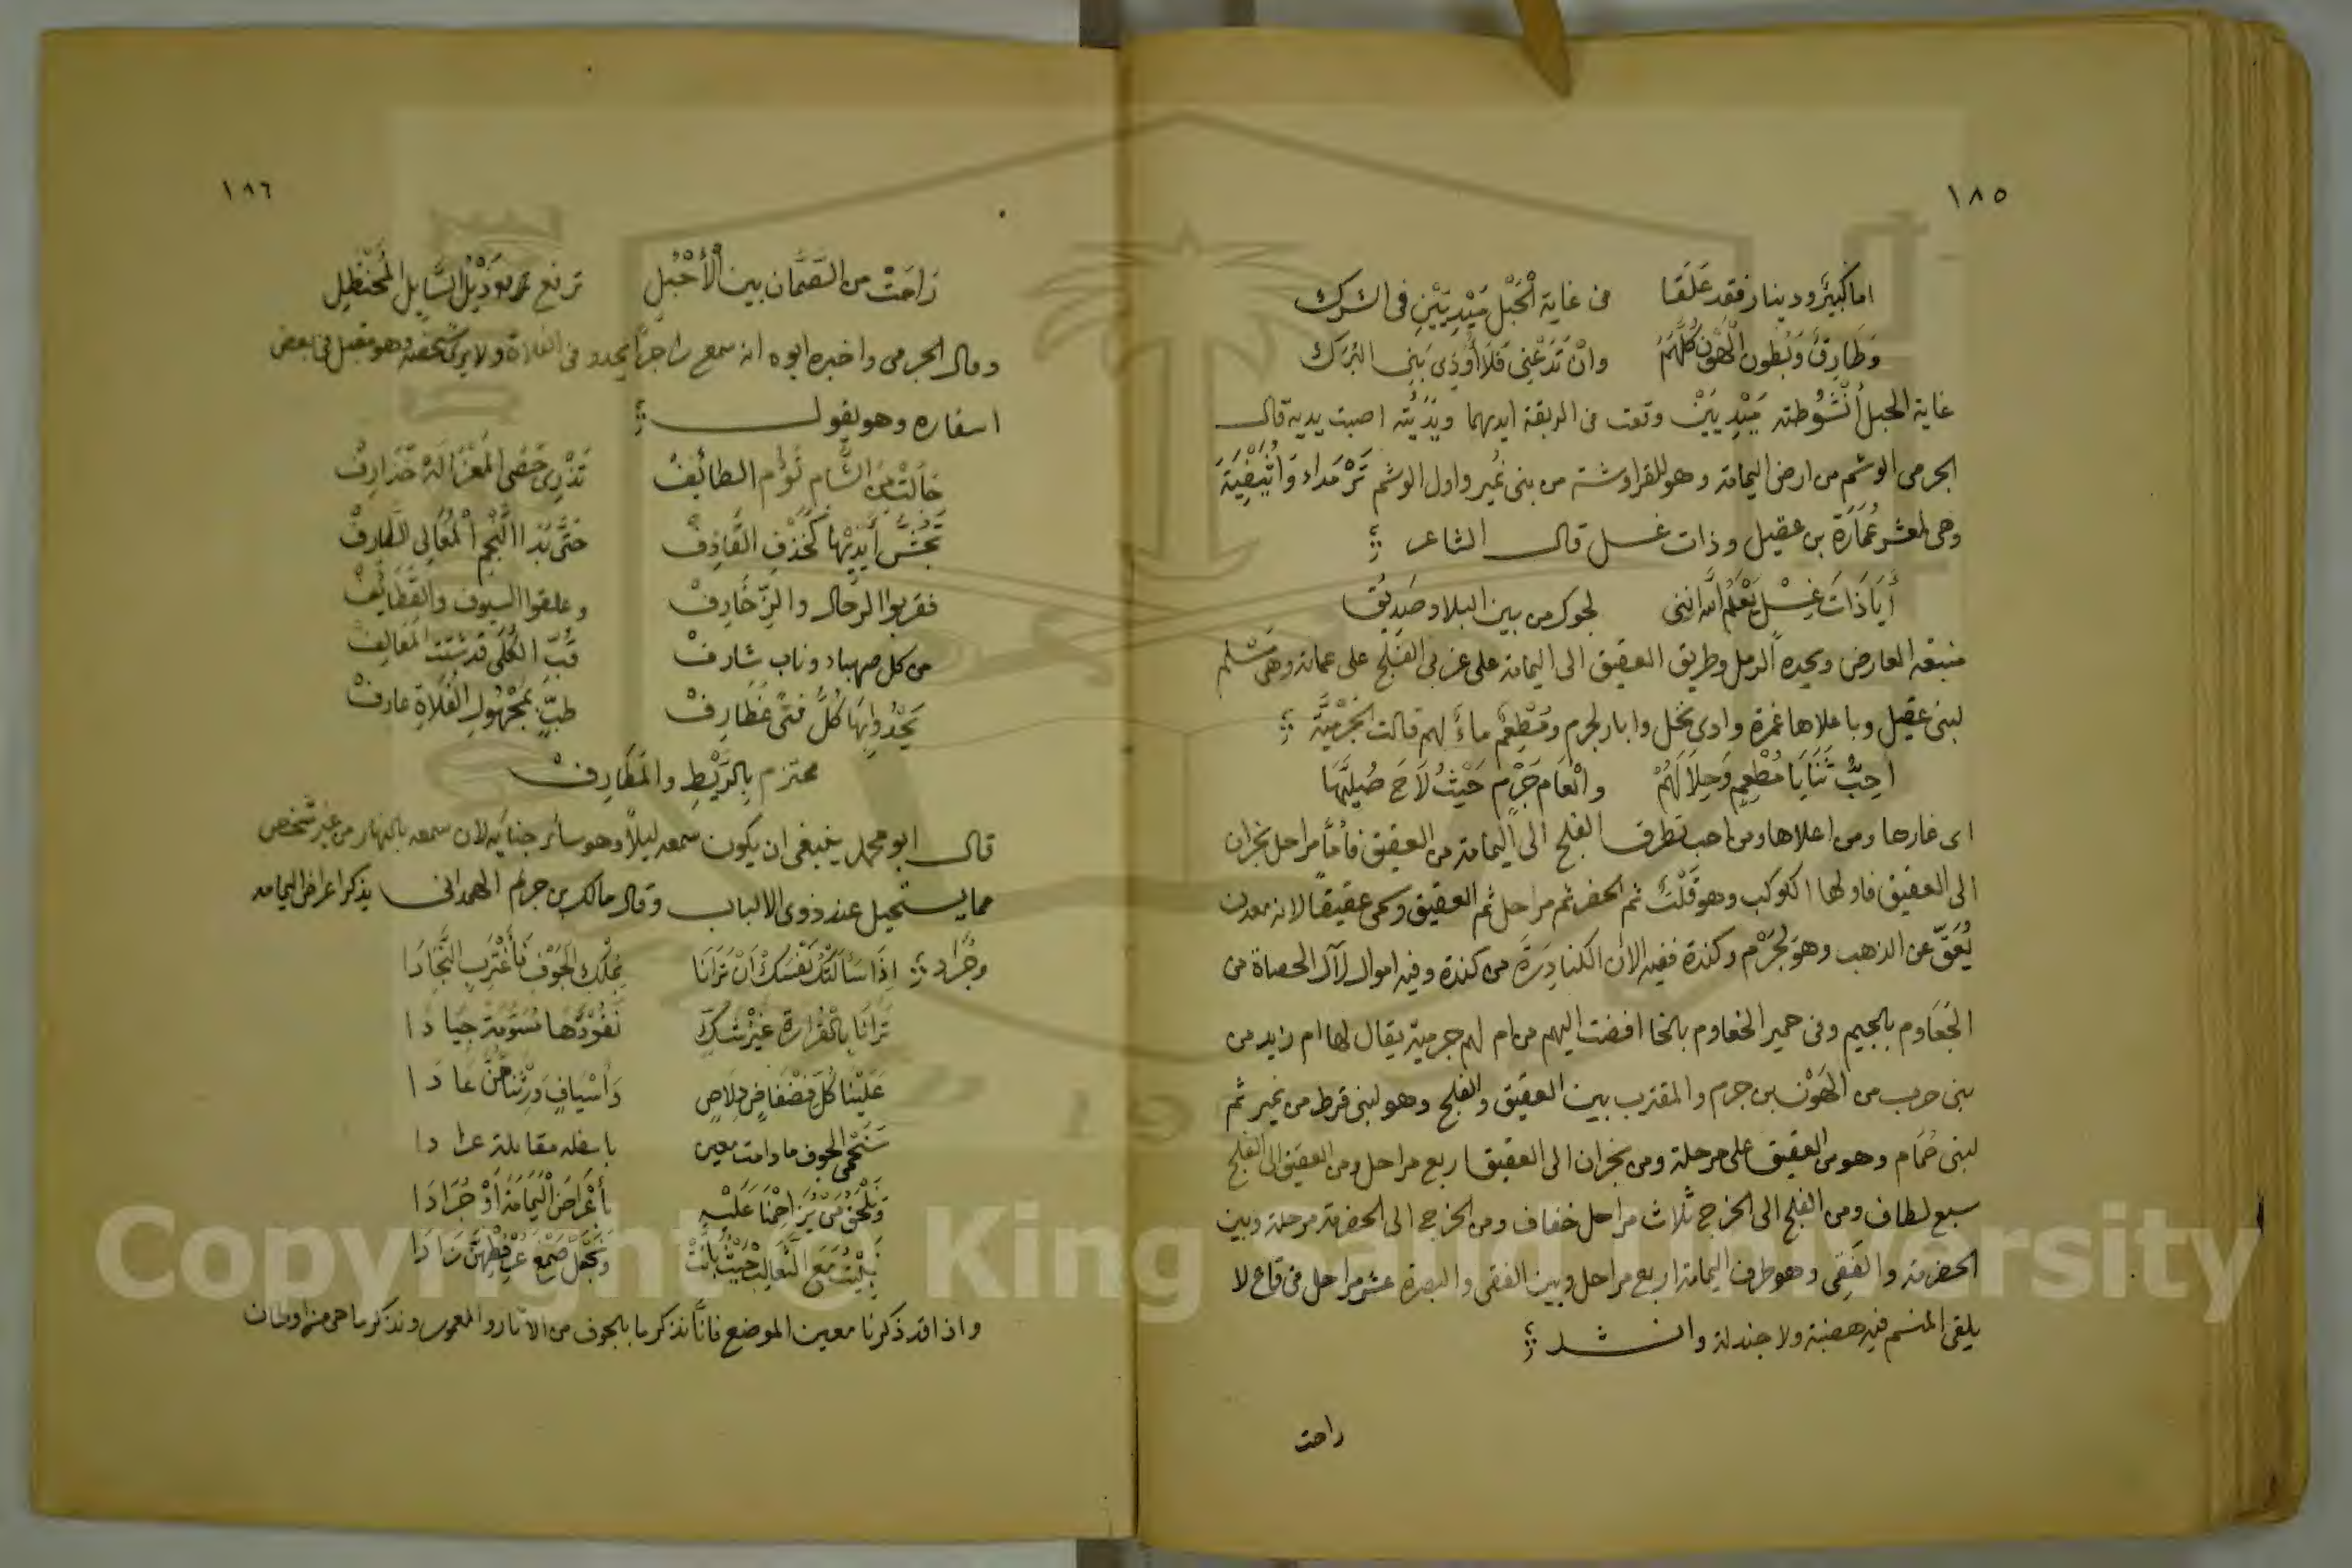 ١٨٥
اما كبير ودينار فقد عَلَقا في غاية الحَبْل مَيْدِيَيْنِ في الشرك
وَطَارِقٌ وَبُطون الْهَوْن كُلّهُمُ وانْ تَدَعْنِي فَلَا أُوذِى بَنِى البُرَك
غاية الحبل أُنْشُوطته مَيْدِيَيْن وقعت في الربقة ايديهما ويَدَيْته اصبت يديه قال
الجرمى الوشم من ارض اليمامة وهو للقراوشة من بنى نُمير واول الوشم ثَرْمَداء وَأُثَيْفِيَة
وهى لمعشر عُمَارَة بن عقيل وذات غسل قال الشاعر
أَيَا ذَاتَ غِسْل يَعْلَمُ الله اننى لجوك من بين البلاد صَدِيق
منبعه العارض ويحده الرمل وطريق العقيق الى اليمامة على غربى الفلج على عماية وهى
لبنى عقيل وباعلاها غمرة وادى نخل وابار لجرم ومُطْعِم ماءٌ لهم قالت الجَرْمِيَّة
احِبُّ ثَنَايَا مُطْعِم وَحِلَالَهُمْ وانْعَام جَرْم حَيْثُ لَاحَ صُيلهَا
اى غارها ومن اعلاها ومن احب تطرف الفلج الى اليمامة من العقيق فأمّا مراحل نجران
الى العقيق فاولها الكوكب وهو قَلْتٌ ثم الحفر ثم مراحل ثم العقيق وسمى عقيقًا لانه معدن
يُعَقّ عن الذهب وهو لجَرْم وكندة ففيه الان الكنادِرَة من كندة وفيه اموال لآل الحصاة من
الجَعاوم بالجيم وفى حمير الخعاوم بالخا افضت اليهم من ام لهم جرمية يقال لها ام زيد من
بنى حرب من الهَوْن بن جرم والمقترب بين العقيق والفلج وهو لبنى قرط من نمير ثم
لبنى حُمَام وهو من العقيق على مرحلة ومن نجران الى العقيق اربع مراحل ومن العقيق الى الفلج
سبع لطاف ومن الفلج الى الخرج ثلاث مراحل خفاف ومن الخرج الى الخضرمة مرحلة وبين
الخضرمة والفَقِى وهو طرف اليمامة اربع مراحل وبين الفقى والبصرة عشر مراحل في قاع لا
يلقى المنسم فيه هضبة ولا جندلة وانشد
راحت
١٨٦
رَاحَتْ من الصَّمَّان بين الأَحْبُلِ ترفع ذَيْلِ السَّابِلِ
وقال الجرمى واخبره ابوه انه سمع راجزا يحدو في الفلاة ولا يرى شخصه وهو مقبل في بعض
اسفاره وهو يقول
جَالَتْ مِن الشَّام تَؤُم الطائِفْ تَذْرِى حَصَى المَعْزَا لَهُ حَذَارِفْ
تَحُشّ أَيْدِيْهَا كَخَذْفِ القَاذِفْ حَتَّى بَدَا النَّجْم الْمُعَالِى الطارفْ
فقربوا الرحال والزّخَارِفْ وعلقوا السيوف والقَطَائِفْ
من كل صهباء وناب شارفْ قُبّ الكُلَى قد شنت
يَحْدُو بِهَا كُلُّ فَتًى غَطَارِفْ طبٍّ بِمَجْهُولِ الفَلَاةِ عارفْ
محتزم بِالرَّيْطِ والمَطَارِفْ
قال ابو محمد ينبغى ان يكون سمعه ليلًا وهو سائر لان سمعه بالنهار من غير شخص
مما يستحيل عند ذوى الالباب وقال مالك بن حريم الهمدانى يذكر اعراض اليمامة
وجُرَاد إذَا سَأَلَتْكَ نَفْسُكَ أَنْ تَرَانَا بِمِلْكِ الجَوْف فَأغْتَرِبِ النَّجَادَا
تَرَانَا بِالْقَرَارَةِ غَيْرَ شَكّ نَقُودُهَا مُسَوَّمَةً جِيَادا
عَلَيْنَا كُلُّ فَضْفَاضٍ دِلَاصٍ وَأسْيَافٍ وَرِثْنَاهُنَّ عَادَا
سَنَحْمِى الجوف ما دامت معين باسفله مقابلة عرادا
وَنَلْحَق مَنْ يُزَاحِمُنَا عَلَيْهِ بأَعْرَاضِ الْيَمَامَةِ أَوْ جُرَادَا
يَبِيتُ مَعَ الثَّعَالِبِ حَيْثُ بَاتَتْ وَيَجْعَلُ صَمْغَ عُرْفُطِهِنَّ زَادَا
واذا قد ذكرنا معين الموضع فانّا نذكر ما بالجوف من الآثار و ونذكر ما هى
Copyright © King Saud University